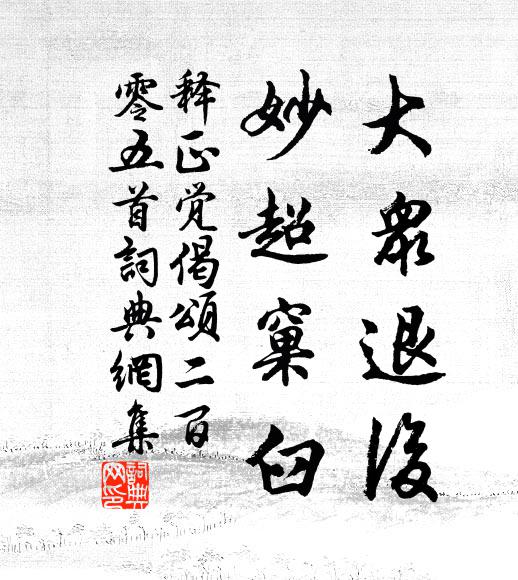 大眾退後
妙超窠臼
释正觉偈頌二百
零五首詞典網集
詞典
网印